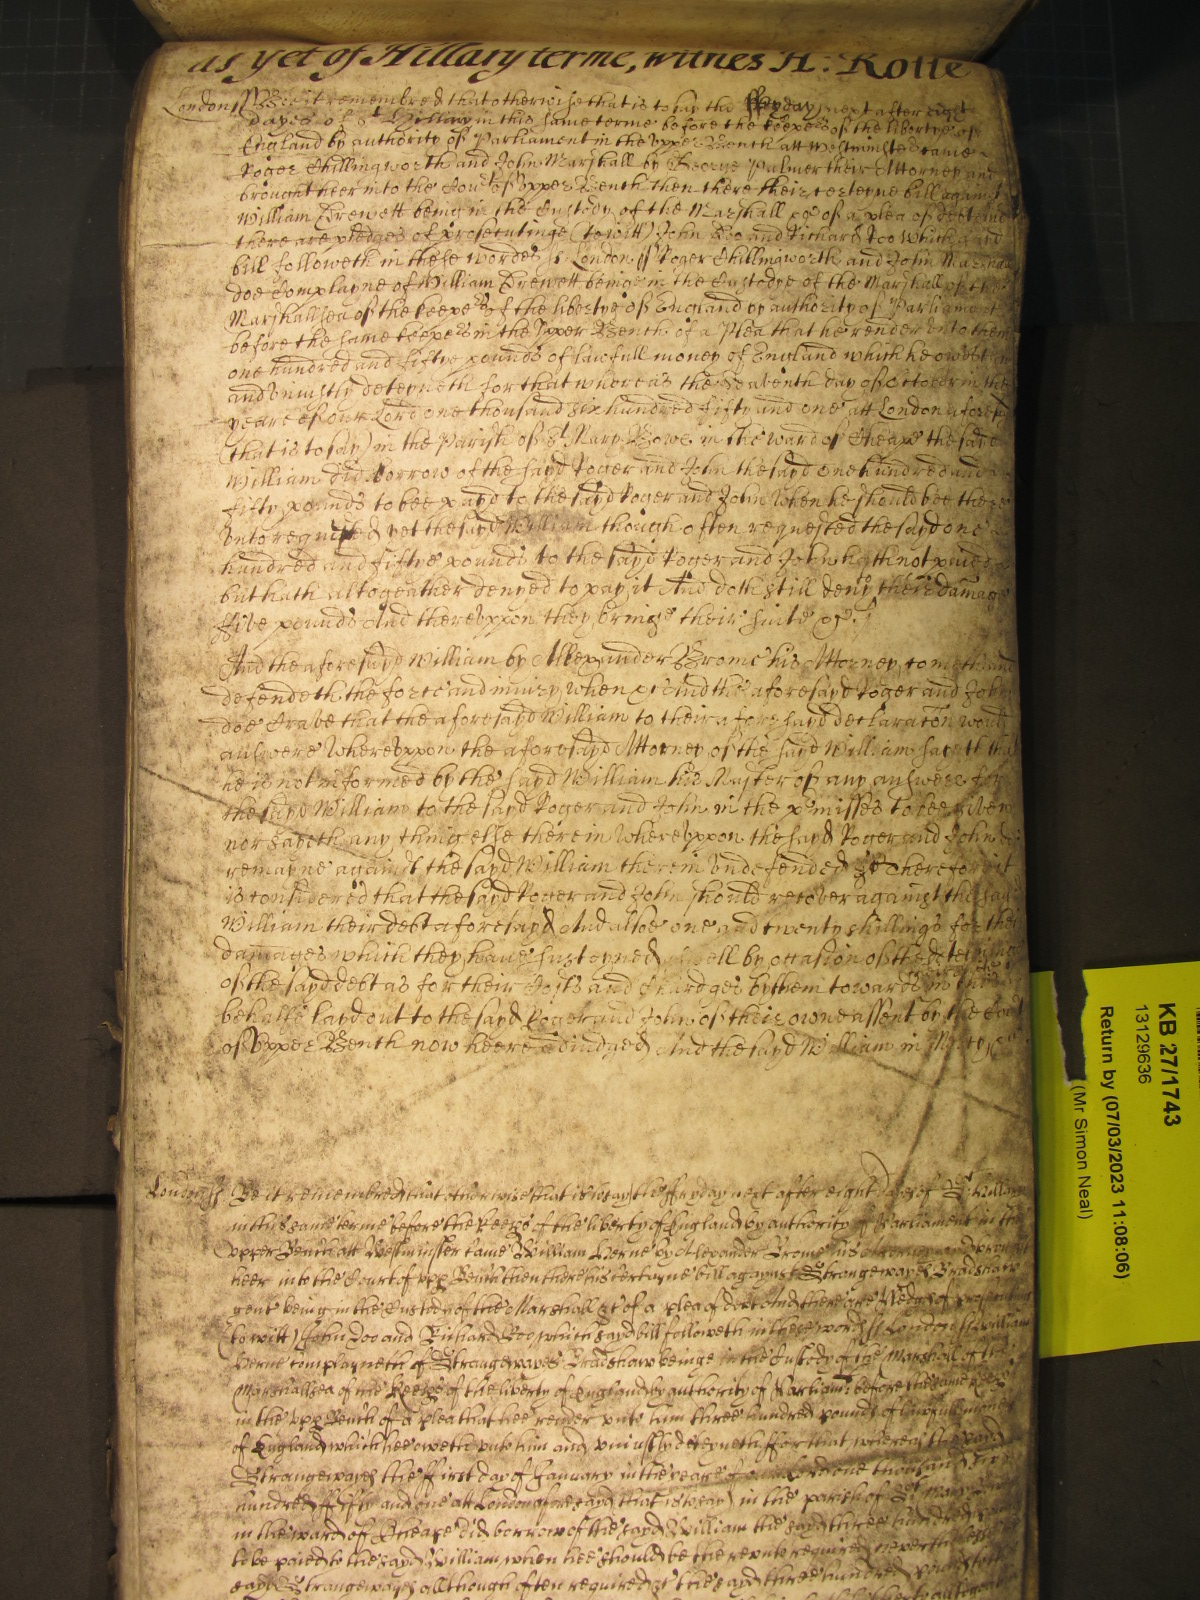 as yet of Hillary terme, witnes H: Rolle
London ss Bee it remembred that otherwise that is to say the ffryday next after eight
dayes of St Hillary in this same terme before the keepers of the libertye of
England by authority of Parliament in the vpper Bench att Westminster came
Roger Chillingworth and John Marshall by George Palmer their Attorney and
brought heer into the Court of vpper Bench then there their certeyne bill against
William Brewett being in the Custody of the Marshall &c of a plea of debt and
there are pledges of prosecutinge (to witt) John Doo and Richard Roo which said
bill followeth in these wordes ss London ss Roger Chillingworth and John Marshall
doe Complayne of William Brewett beinge in the Custodye of the Marshall of the
Marshallsea of the keepers of the libertye of England by authority of Parliament
before the same keepers in the vpper Bench of a Plea that he render vnto them
one hundred and fiftye pounds of lawfull money of England which he oweth
and vniustly deteyneth for that whereas the Seaventh day of October in the
yeare of our Lord one thousand six hundred fifty and one att London aforesd
(that is to say) in the Parish of St Mary Bowe in the ward of Cheape the said
William did borrow of the sayd Roger and John the sayd one hundred and
fifty pounds to bee payd to the sayd Roger and John when he should bee there
vnto required yet the sayd William though often requested the sayd one
hundred and fiftye pounds to the sayd Roger and John hath not paid
but hath altogeather denyed to pay it And doth still deny there damage
ffive pounds And therevppon they bringe their suite &c.
And the aforesayd William by Allexander Brome his Attorney cometh and
defendeth the force and iniury when &c And the aforesayd Roger and John
doe Crave that the aforesayd William to their aforesayd declaracon would
answere Wherevppon the aforesayd Attorney of the sayd William saith that
he is not informed by the sayd William his Master of any answere for
the sayd William to the sayd Roger and John in the premisses to bee given
nor sayeth any thing else therein Wherevppon the sayd Roger and John
remayne against the sayd William therein vndefended &c Therefore it
is considered that the sayd Roger and John should recover against the said
William their debt aforesayd And alsoe one and twenty shillings for their
damages which they have susteyned as well by occasion of the deteyning
of the sayd debt as for their Costs and Chardges by them towards
behalfe layd out to the sayd Roger and John of their owne assent by the Court
of vpper Bench now heere adiudged And the sayd William in Mercy &c
London ss Be it remembred that otherwise that is to say the ffryday next after eight dayes of St Hillary
in this same terme before the keeps of the liberty of England by authority of Parliament in the
vpper Bench att Westminster came William Herne by Alexander Brome his attorney and brought
heer into the Court of vpp Bench then there his certayne bill against Strangewayes Bradshaw
gent being in the Custody of the Marshall &c of a plea of debt And there are pledges of prosecuting
(to witt) John Doo and Richard Roo which sayd bill followeth in these words ss London ss William
Herne complayneth of Strangewayes Bradshaw beinge in the Custody of the Marshall of the
Marshallsea of the keeps of the liberty of England by authority of Parliamt before the same keeps
in the vpp Bench of a plea that hee render vnto him three hundred pounds of lawfull money
of England which hee oweth vnto him and vniustly deteyneth ffor that whereas the sayd
Strangewayes the ffirst day of January in the yeare of our Lord one thousand six
hundred ffifty and one att London aforesayd (that is to say) in the parish of St Mary
in the ward of Cheape did borrow of the sayd William the sayd three hundred pounds
to be paied to the sayd William when hee should be therevnto required neverthelesse
sayd Strangewayes allthough often required &c the sayd three hundred pounds to the
KB 27/1743
13129636
Return by (07/03/2023 11:08:06)
(Mr Simon Neal)